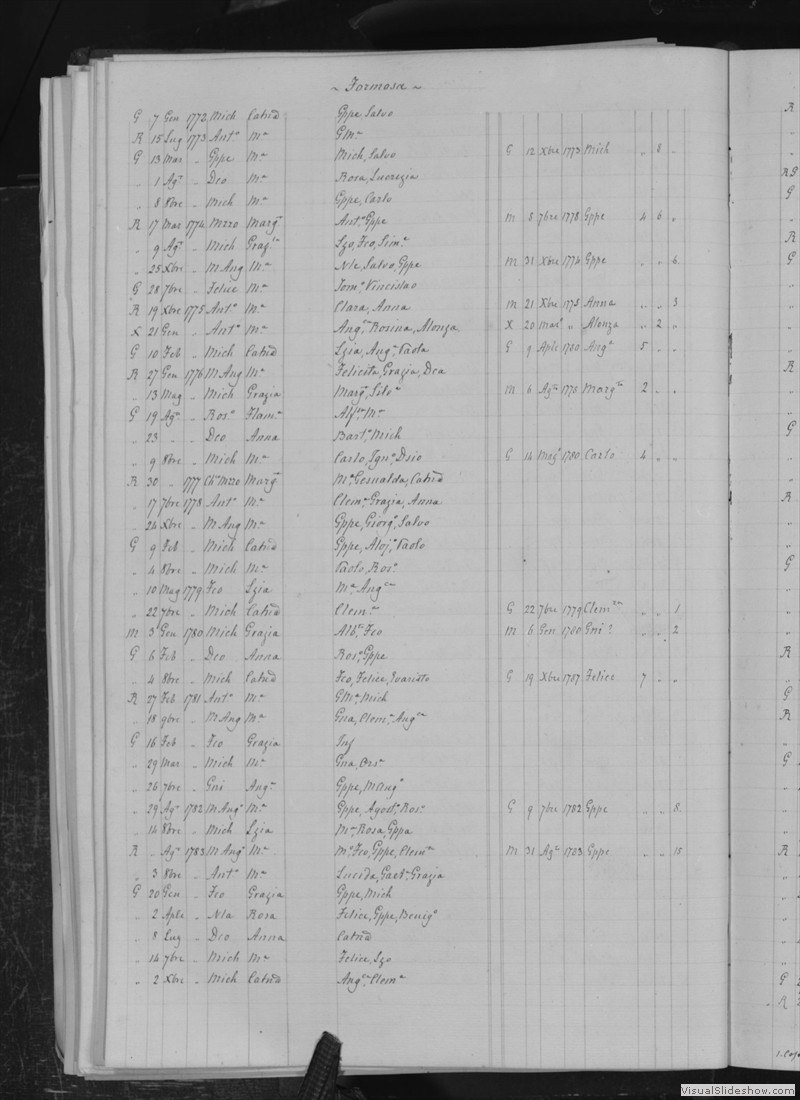 ~ Formosa ~
G 7 Gen 1772 Mich Catña Gppe, Salvo
R 15 Lug 1773 Antº Mª GMª
G 13 Mar " Gppe Mª Mich, Salvo G 12 Xbre 1773 Mich " 8 "
" 1 Agº " Dco Mª Rosa, Lucrezia
" 8 8bre " Mich Mª Gppe, Carlo
R 17 Mar 1774 Mzzo Margª Antº, Gppe M 8 7bre 1778 Gppe 4 6 "
" 9 Agº " Mich Grazia Lzo, Fco, Simº
" 25 Xbre " M Ang Mª Nla, Salvo, Gppe M 31 Xbre 1774 Gppe " " 6
G 28 7bre " Felice Mª Tomº, Vincislao
R 19 Xbre 1775 Antº Mª Clara, Anna M 21 Xbre 1775 Anna " " 3
X 21 Gen " Antº Mª Angª, Rosina, Alonza X 20 Marº " Alonza " 2 "
G 10 Feb " Mich Catña Lzia, Angª, Paola G 9 Aple 1780 Angª 5 " "
R 27 Gen 1776 M Ang Mª Felicita, Grazia, Dca
" 13 Mag " Mich Grazia Margª, M 6 Agº 1778 Margª 2 " "
G 19 Agº " Rosº Flamª Alfº Mª
" 23 " " Dco Anna Bartº, Mich
" 9 8bre " Mich Mª Carlo, Ignº, Dsio G 14 Magº 1780 Carlo 4 " "
R 30 " 1777 Mzzo Margª Mª, Gesualda, Catña
" 17 7bre 1778 Antº Mª Clemª, Grazia, Anna
" 24 Xbre " M Ang Mª Gppe, Giorgº, Salvo
G 9 Feb " Mich Catña Gppe, Alojº, Paolo
" 4 8bre " Mich Mª Paolo, Rosº
" 10 Mag 1779 Fco Lzia Mª, Angª
" 22 7bre " Mich Catña Clemª G 22 7bre 1779 Clemª " " 1
M 3 Gen 1780 Mich Grazia Albº, Fco M 6 Gen 1780 Gni? " " 2
G 6 Feb " Dco Anna Rosº, Gppe
" 4 8bre " Mich Catña Fco, Felice, Evaristo G 19 Xbre 1787 Felice 7 " "
R 27 Feb 1781 Antº Mª GMª, Mich
" 18 9bre " M Ang Mª Gna, Clemª, Angª
G 16 Feb " Fco Grazia Inf
" 29 Mar " Mich Mª Gna, Orsª
" 26 7bre " Gni Angª Gppe, M Angº
" 29 Agº 1782 M Angº Mª Gppe, Agostº, Rosº G 9 7bre 1782 Gppe " " 8
" 14 8bre " Mich Lzia Mª, Rosa, Gppa
R " Agº 1783 M Angº Mª Mª, Fco, Gppe, Clemª M 31 Agº 1783 Gppe " " 15
" 3 8bre " Antº Mª Lucida, Gaetª, Grazia
G 20 Gen " Fco Grazia Gppe, Mich
" 2 Aple " Nla Rosa Felice, Gppe, Benigº
" 8 Lug " Dco Anna Catña
" 14 7bre " Mich Mª Felice, Lzo
" 2 Xbre " Mich Catña Angª, Clemª
VisualSlideshow.com